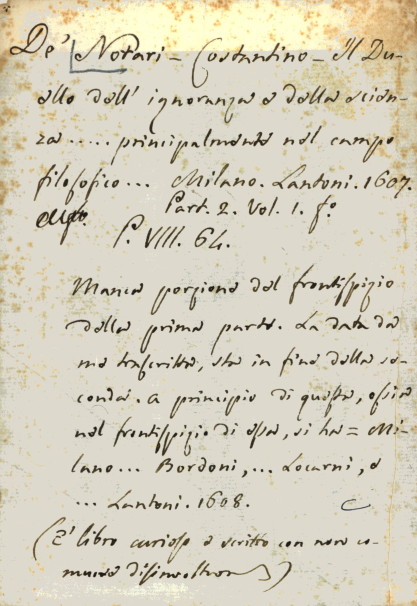 De' Notari - Costantino - Il Du-
ello dell' ignoranza e della scien-
za ..... principalmente nel campo
filosofico ... Milano. Lantoni. 1607.
Part. 2. Vol. 1. f.º
P. VIII. 64.
Manca porzione del frontispizio
della prima parte. La data da
me trascritta, sta in fine della se-
conda. A principio di questa, ossia
nel frontispizio di essa, si ha = Mi-
lano ... Bordoni, ... Locarni, e
... Lantoni. 1608.
(E' libro curioso e scritto con non co-
mune disinvoltura)